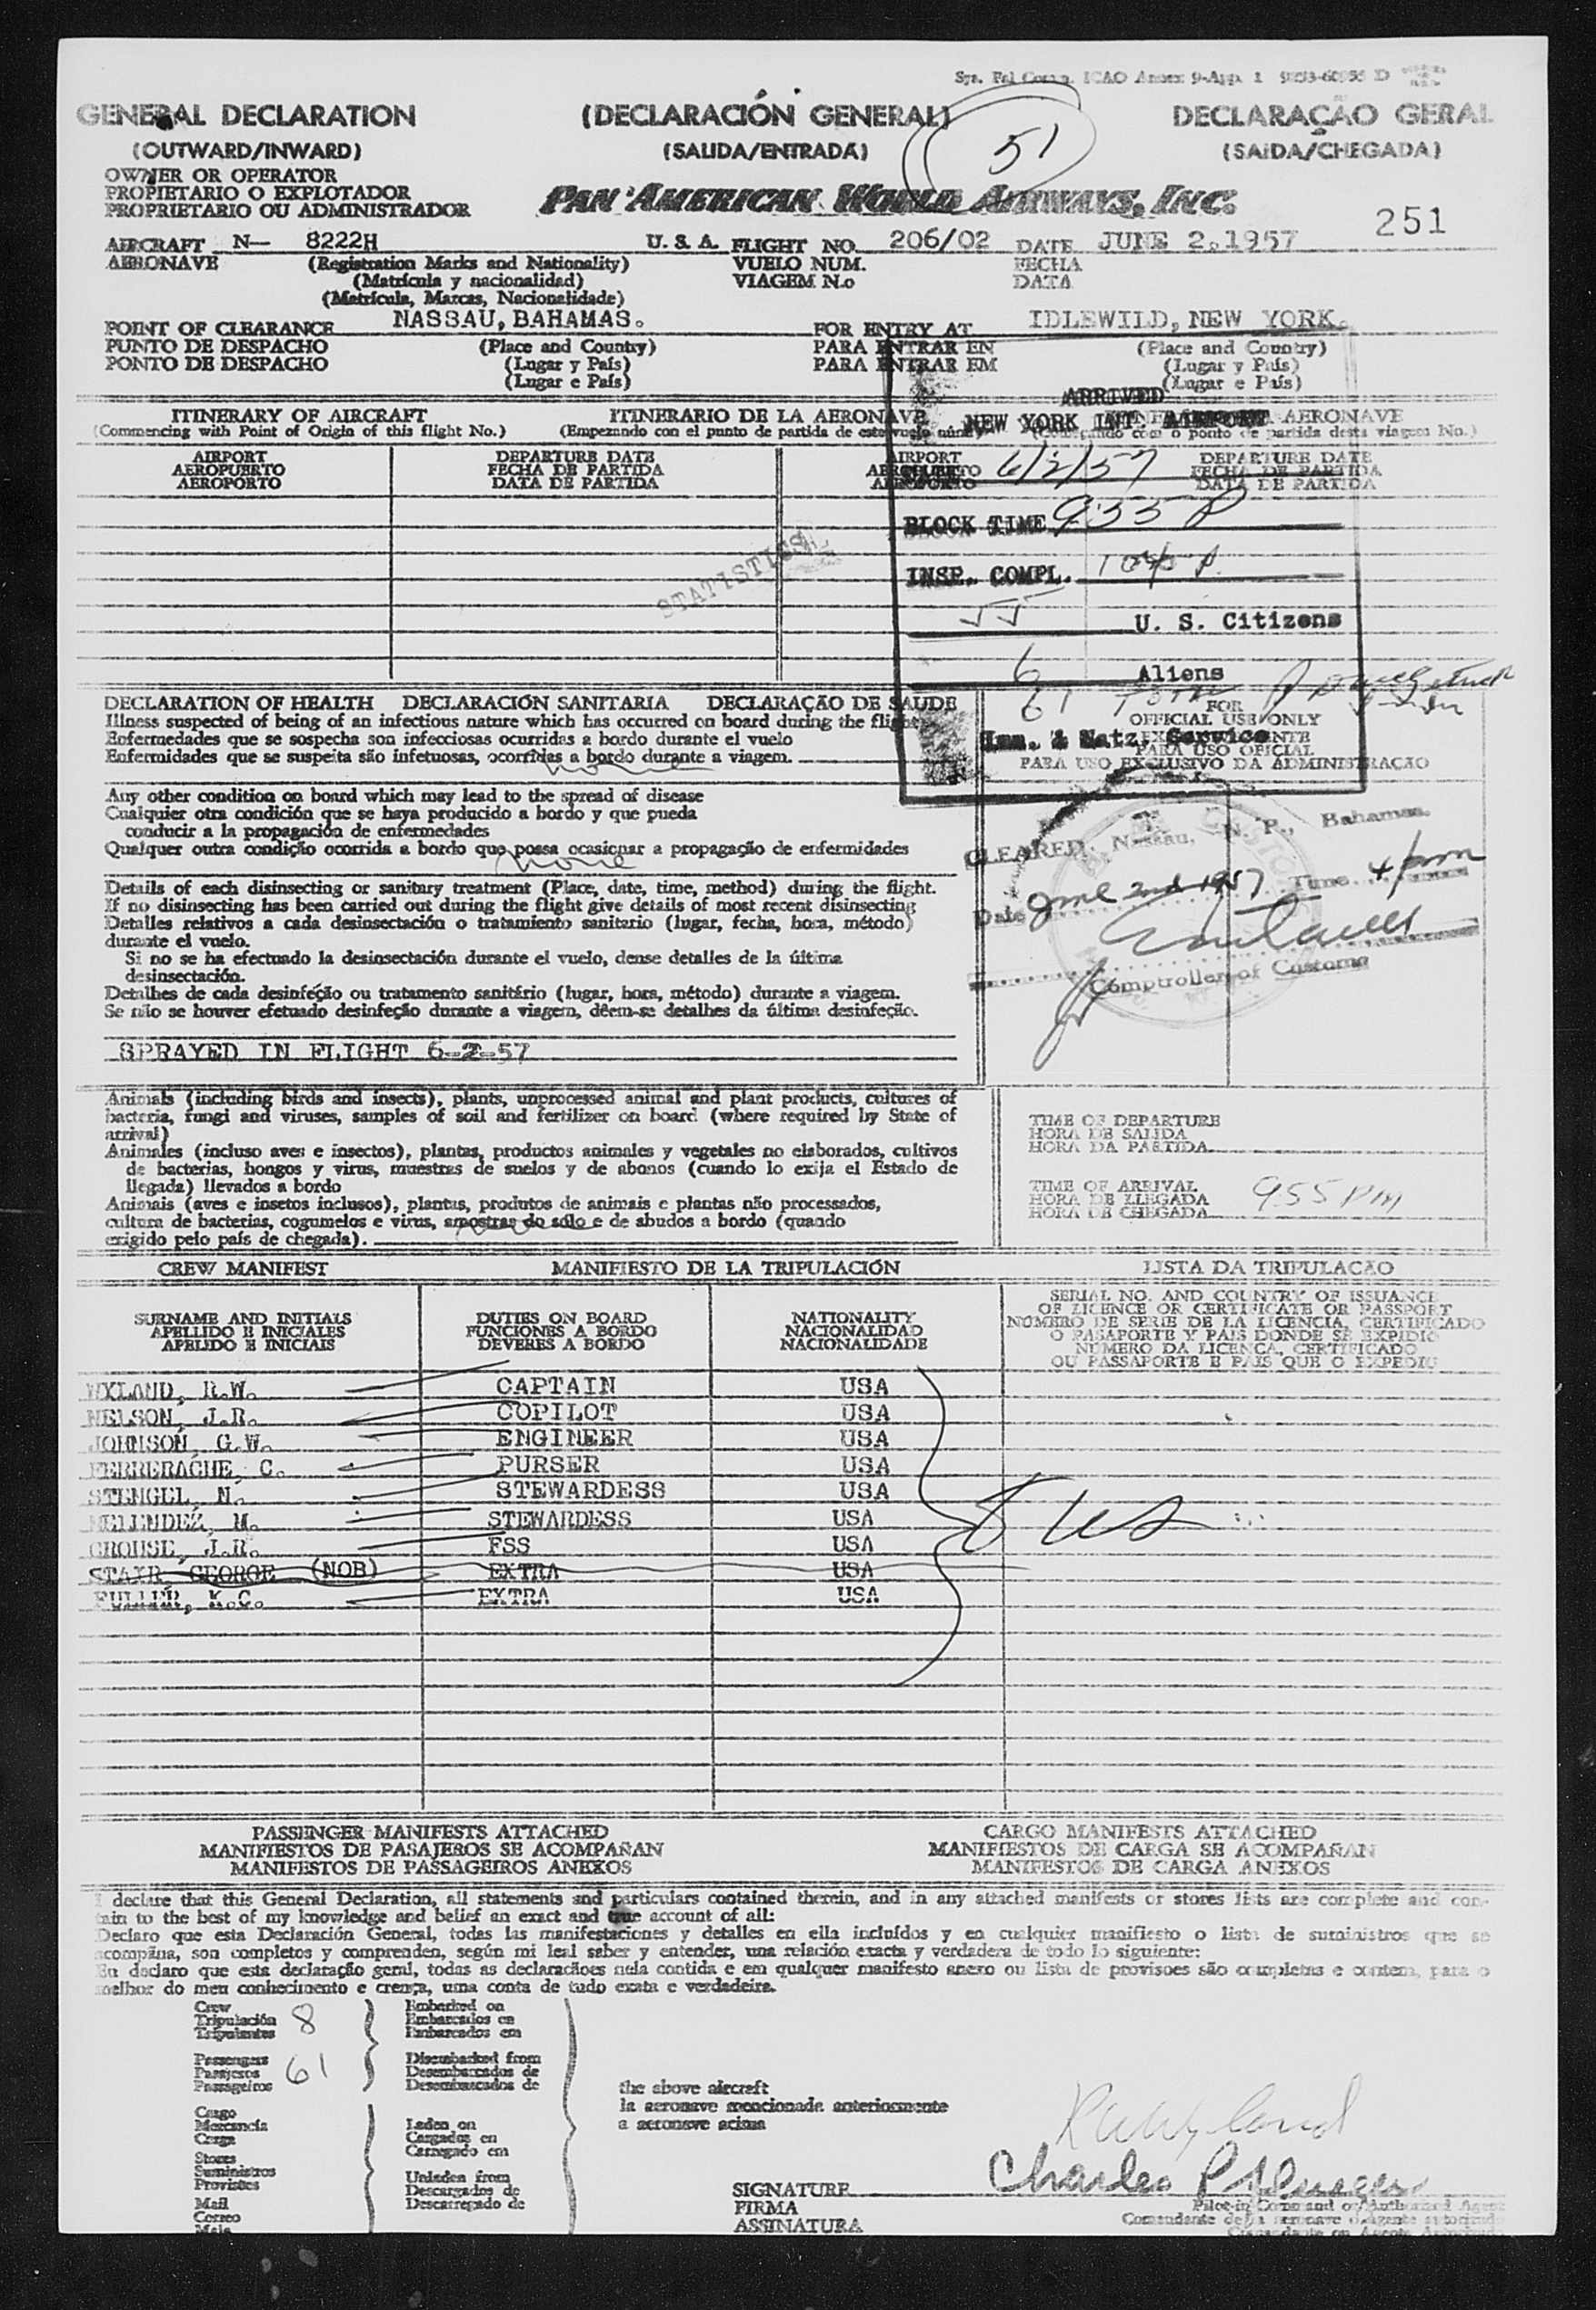 GENERAL DECLARATION (DECLARACIÓN GENERAL) DECLARAÇÃO GERAL
(OUTWARD/INWARD) (SALIDA/ENTRADA) (SAIDA/CHEGADA)
51
OWNER OR OPERATOR
PROPIETARIO O EXPLOTADOR
PROPRIETARIO OU ADMINISTRADOR
PAN AMERICAN WORLD AIRWAYS, INC.
251
AIRCRAFT N— 8222H U. S. A. FLIGHT NO. 206/02 DATE JUNE 2, 1957
AERONAVE (Registration Marks and Nationality) VUELO NUM. FECHA
(Matrícula y nacionalidad) VIAGEM N.o DATA
(Matrícula, Marcas, Nacionalidade)
POINT OF CLEARANCE NASSAU, BAHAMAS. FOR ENTRY AT IDLEWILD, NEW YORK.
PUNTO DE DESPACHO (Place and Country) PARA ENTRAR EN (Place and Country)
PONTO DE DESPACHO (Lugar y País) PARA ENTRAR EM (Lugar y País)
(Lugar e País) (Lugar e País)
ITINERARY OF AIRCRAFT ITINERARIO DE LA AERONAVE AERONAVE
(Commencing with Point of Origin of this flight No.) (Empezando con el punto de partida de este vuelo núm.) (Começando com o ponto de partida desta viagem No.)
AIRPORT DEPARTURE DATE AIRPORT DEPARTURE DATE
AEROPUERTO FECHA DE PARTIDA AEROPUERTO FECHA DE PARTIDA
AEROPORTO DATA DE PARTIDA AEROPORTO DATA DE PARTIDA
ARRIVED
NEW YORK INT. AIRPORT
6/2/57
BLOCK TIME 955 P
INSP. COMPL.
55 U. S. Citizens
6 Aliens
61
Imm. & Natz. Service
STATISTICAL
DECLARATION OF HEALTH DECLARACIÓN SANITARIA DECLARAÇÃO DE SAUDE
Illness suspected of being of an infectious nature which has occurred on board during the flight
Enfermedades que se sospecha son infecciosas ocurridas a bordo durante el vuelo
Enfermidades que se suspeita são infetuosas, ocorridas a bordo durante a viagem.
FOR
OFFICIAL USE ONLY
PARA USO OFICIAL
PARA USO EXCLUSIVO DA ADMINISTRAÇÃO
Any other condition on board which may lead to the spread of disease
Cualquier otra condición que se haya producido a bordo y que pueda
conducir a la propagación de enfermedades
Qualquer outra condição ocorrida a bordo que possa ocasionar a propagação de enfermidades
none
CLEARED, Nassau, N. P., Bahamas.
Date June 2nd 1957 Time 4/pm
Comptroller of Customs
Details of each disinsecting or sanitary treatment (Place, date, time, method) during the flight.
If no disinsecting has been carried out during the flight give details of most recent disinsecting
Detalles relativos a cada desinsectación o tratamiento sanitario (lugar, fecha, hora, método)
durante el vuelo.
Si no se ha efectuado la desinsectación durante el vuelo, dense detalles de la última
desinsectación.
Detalhes de cada desinfeção ou tratamento sanitário (lugar, hora, método) durante a viagem.
Se não se houver efetuado desinfeção durante a viagem, dêem-se detalhes da última desinfeção.
SPRAYED IN FLIGHT 6-2-57
Animals (including birds and insects), plants, unprocessed animal and plant products, cultures of
bacteria, fungi and viruses, samples of soil and fertilizer on board (where required by State of
arrival)
Animales (incluso aves e insectos), plantas, productos animales y vegetales no elaborados, cultivos
de bacterias, hongos y virus, muestras de suelos y de abonos (cuando lo exija el Estado de
llegada) llevados a bordo
Animais (aves e insetos inclusos), plantas, produtos de animais e plantas não processados,
cultura de bacterias, cogumelos e virus, amostras do sólo e de abudos a bordo (quando
exigido pelo país de chegada).
TIME OF DEPARTURE
HORA DE SALIDA
HORA DA PARTIDA
TIME OF ARRIVAL
HORA DE LLEGADA 955 PM
HORA DE CHEGADA
CREW MANIFEST MANIFIESTO DE LA TRIPULACIÓN LISTA DA TRIPULACÃO
SURNAME AND INITIALS DUTIES ON BOARD NATIONALITY
APELLIDO E INICIALES FUNCIONES A BORDO NACIONALIDAD
APELIDO E INICIAIS DEVERES A BORDO NACIONALIDADE
SERIAL NO. AND COUNTRY OF ISSUANCE
OF LICENCE OR CERTIFICATE OR PASSPORT
NÚMERO DE SERIE DE LA LICENCIA, CERTIFICADO
O PASAPORTE Y PAIS DONDE SE EXPIDIÓ
NÚMERO DA LICENÇA, CERTIFICADO
OU PASSAPORTE E PAIS QUE O EXPEDIU
WYLAND, R.W. CAPTAIN USA
NELSON, J.R. COPILOT USA
JOHNSON, G.W. ENGINEER USA
FERRERACHE, C. PURSER USA
STENGEL, N. STEWARDESS USA
MELENDEZ, M. STEWARDESS USA
CROUSE, J.R. FSS USA
STAYR, GEORGE (NOB) EXTRA USA
FULLER, K.C. EXTRA USA
8 US
PASSENGER MANIFESTS ATTACHED CARGO MANIFESTS ATTACHED
MANIFIESTOS DE PASAJEROS SE ACOMPAÑAN MANIFIESTOS DE CARGA SE ACOMPAÑAN
MANIFESTOS DE PASSAGEIROS ANEXOS MANIFESTOS DE CARGA ANEXOS
I declare that this General Declaration, all statements and particulars contained therein, and in any attached manifests or stores lists are complete and con-
tain to the best of my knowledge and belief an exact and true account of all:
Declaro que esta Declaración General, todas las manifestaciones y detalles en ella incluídos y en cualquier manifiesto o lista de suministros que se
acompãna, son completos y comprenden, según mi leal saber y entender, una relación exacta y verdadera de todo lo siguiente:
Eu declaro que esta declaração geral, todas as declaracãoes nela contida e em qualquer manifesto anexo ou lista de provisoes são completas e contem, para o
melhor do meu conhecimento e crença, uma conta de tudo exata e verdadeira.
Crew Embarked on
Tripulación 8 Embarcados en
Tripulantes Embarcados em
Passengers Disembarked from
Pasajeros 61 Desembarcados de
Passageiros Desembarcados de
the above aircraft
la aeronave mencionada anteriormente
a aeronave acima
Cargo Laden on
Mercancía Cargados en
Carga Carregado em
Stores
Suministros Unladen from
Provisões Descargados de
Mail Descarregado de
Correo
Mala
RWWyland
SIGNATURE Charles
FIRMA
ASSINATURA
Pilot-in Command or Authorized Agent